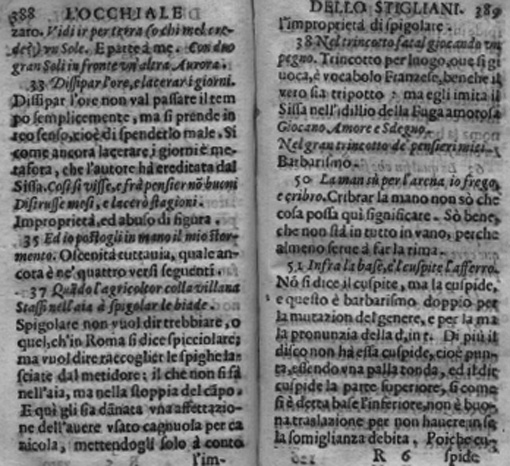 388 L'OCCHIALE
zaro. Vidi ir per terra (o chi mel cre-
de?) vn Sole. E parte à me. Con duo
gran Soli in fronte vn'altra Aurora.
33 Dissipar l'ore, e lacerar i giorni.
Dissipar l'ore non val passare il tem
po semplicemente, ma si prende in
reo senso, cioè di spenderlo male. Si
come ancora lacerare i giorni è me-
tafora, che l'autore hà ereditata dal
Sissa. Così si visse, e frà pensier nõ buoni
Distrusse mesi, e lacerò stagioni.
Improprietà, ed abuso di figura.
35 Ed io postogli in mano il mio stor-
mento. Oscenità tuttauia, quale an-
cora è ne' quattro versi seguenti.
37 Quãdo l'agricoltor colla villana
Stassi nell'aia è spigolar le biade.
Spigolare non vuol dir trebbiare, o
quel, ch'in Roma si dice spicciolare;
ma vuol dire raccoglier le spighe la-
sciate dal metidore: il che non si fà
nell'aia, ma nella stoppia del cãpo.
E quì gli sia dãnata vna affettazio-
ne dell'auere vsato cagnuola per ca
nicola, mettendogli solo à conto
l'im-
DELLO STIGLIANI. 389
l'improprietà di spigolare.
38 Nel trincotto fatal giocando un
pegno. Trincotto per luogo, oue si gi
uoca, è vocabolo Franzese, benche il
vero sia tripotto: ma egli imita il
Sissa nell'idillio della Fuga amorosa
Giocano. Amore e Sdegno,
Nel gran trincotto de' pensieri miei.
Barbarismo.
50 La man sù per l'arena io frego,
e cribro. Cribrar la mano non sò che
cosa possa quì significare. Sò bene,
che non stà in tutto in vano, perche
almeno serue à far la rima.
51 Infra la base, e'l cuspite l'afferro.
Nõ si dice il cuspite, ma la cuspide,
e questo è barbarismo doppio per
la mutazion del genere, e per la ma
la pronunzia della d, in t. Di più il
disco non hà essa cuspide, cioè pun-
ta, essendo vna palla tonda, ed il dir
cuspide la parte superiore, si come
si è detta base l'inferiore, non è buo-
na traslazione per non hauere in se
la somiglianza debita. Poiche cu-
R 6 spide